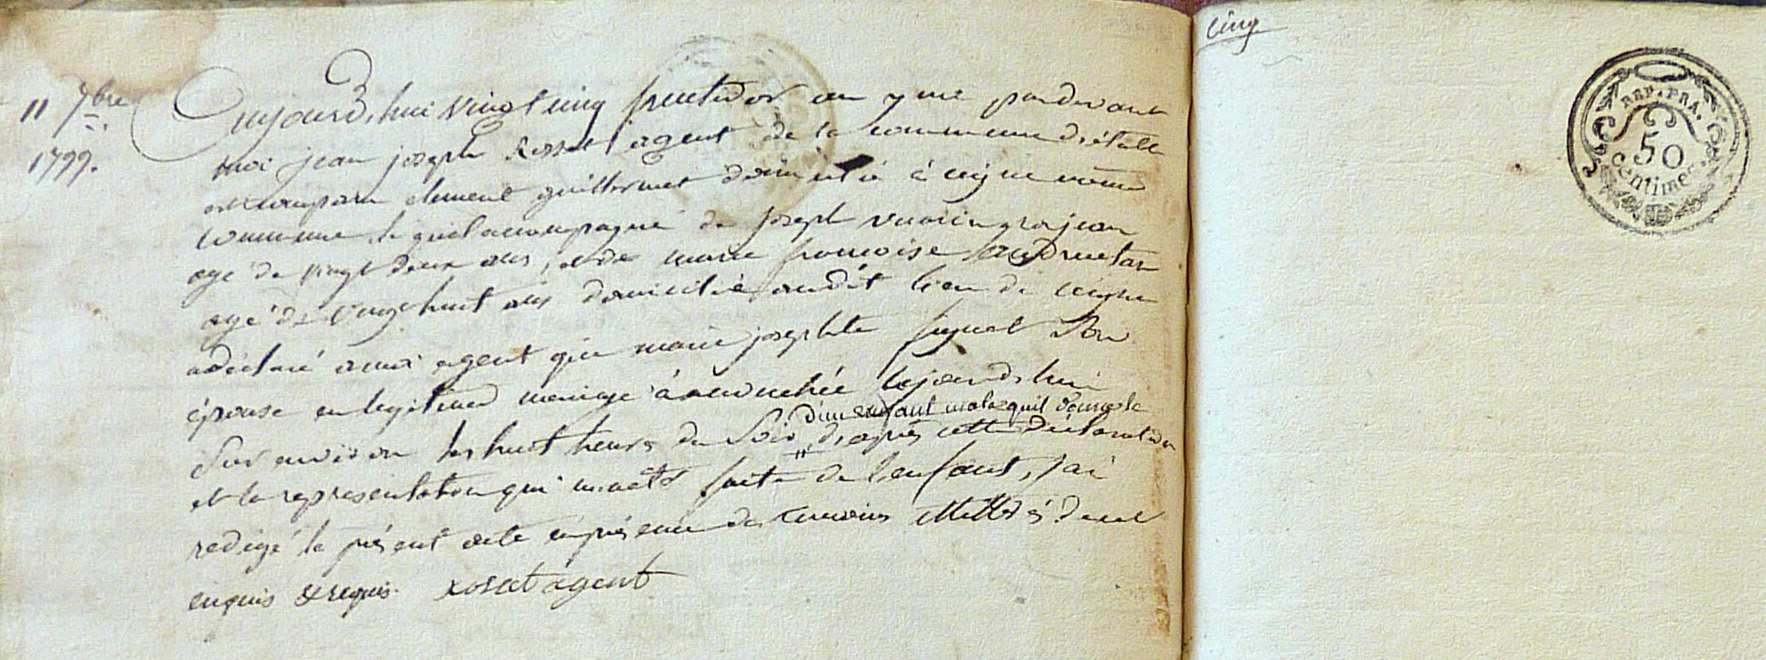 11 7bre
1799.
aujourd,hui vingt cinq fructidor an 7me pardevant
moi jean joseph Rosset agent de la commune d'étable
est comparu clement guillermet domicilié à même
commune, lequel accompagné de joseph
agé de vingt deux ans, et de marie francoise
agé de vingt huit ans domicilié audit lieu de
a déclaré a moi agent que marie josephte Son
épouse en legitimes mariage à accouchée aujourdhui
d'un enfant male quil
Sur environ les huit heures du Soir, d'après cette déclaration
et la representation qui m'aété faite de l'enfant, j'ai
redigé le présent acte en présence des témoins illittérés de ce
enquis & requis. rosset agent
cinq
REP. FRA.
50
Centimes